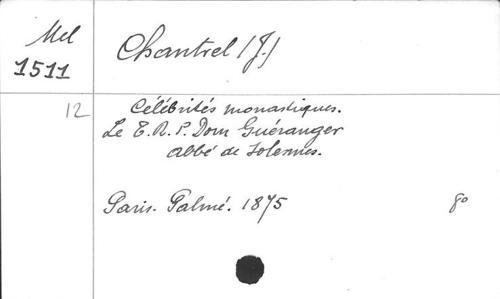 Mel
1511
Chantrel (J.)
12
Célébrités monastiques.
Le T. R. P. Dom Guéranger
abbé de Solesmes.
Paris. Palmé. 1875
8º